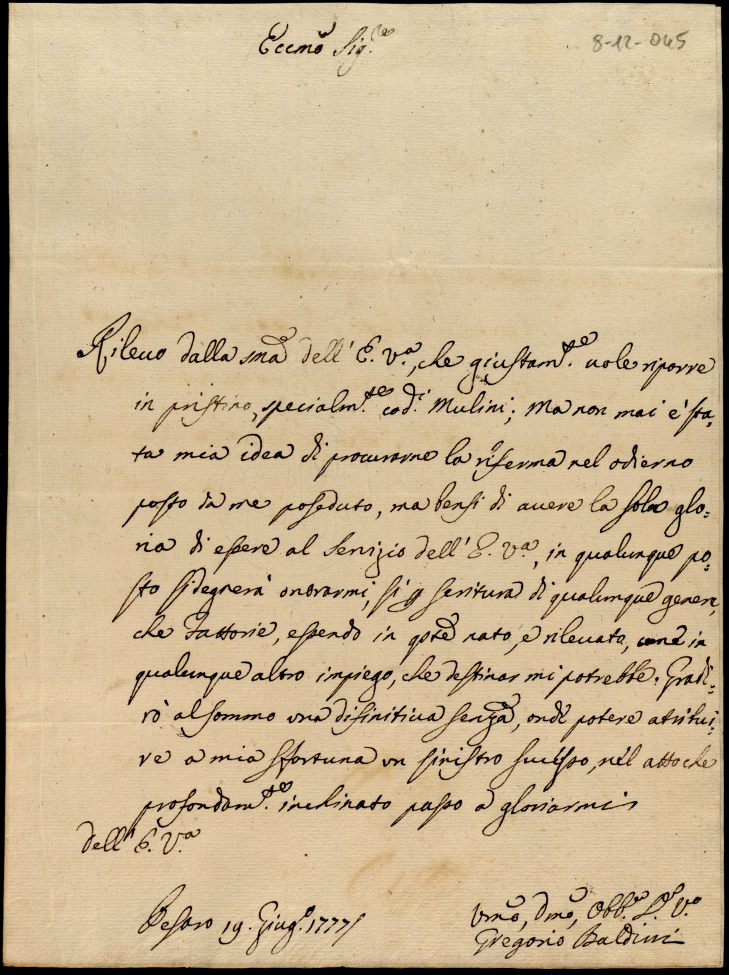 Eccmo Sig.re
8-12-045
Rilevo dalla sma dell' E. V.a, che giustam.te vole riporre
in pristino, specialm.te cod.i Mulini; Ma non mai è sta,
ta mia idea di procurarne la riferma nel odierno
posto da me poseduto, ma bensi di avere la sola glo-
ria di essere al Servizio dell' E. V.a, in qualunque po-
sto si degnerà onorarmi, si p scritura di qualunque genere,
che Fattorie, essendo in qste nato, e rilevato, in
qualunque altro impiego, che destinar mi potrebbe. Gradi-
rò al sommo una difinitiva senza, onde potere atribui-
re a mia sfortuna un sinistro sucesso, nel atto che
profondam.te inchinato passo a gloriarmi
dell' E. V.a
Pesaro 19. Giug.o 1777
Vmo, Dmo, Obb.o S.re V.o
Gregorio Baldini